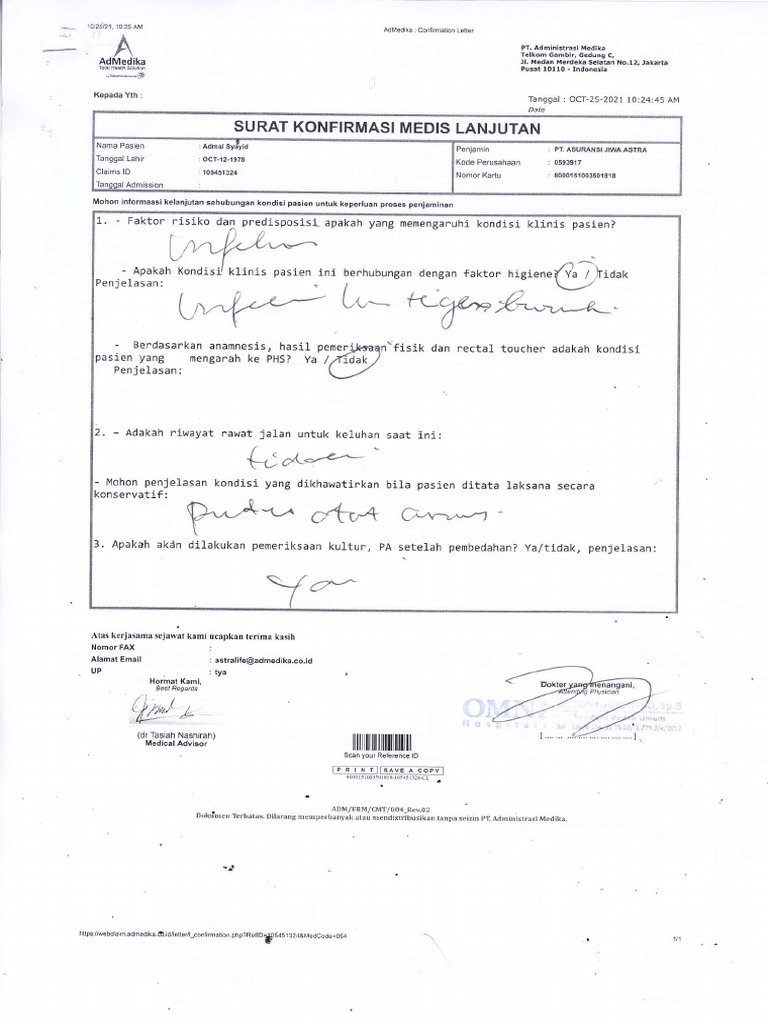 10/25/21, 10:25 AM
AdMedika : Confirmation Letter
AdMedika
Total Health Solution
PT. Administrasi Medika
Telkom Gambir, Gedung C,
Jl. Medan Merdeka Selatan No.12, Jakarta
Pusat 10110 - Indonesia
Kepada Yth :
Tanggal : OCT-25-2021 10:24:45 AM
Date
SURAT KONFIRMASI MEDIS LANJUTAN
Nama Pasien : Admal Syayid
Penjamin : PT. ASURANSI JIWA ASTRA
Tanggal Lahir : OCT-12-1978
Kode Perusahaan : 0593917
Claims ID : 105451324
Nomor Kartu : 8000151003501818
Tanggal Admission :
Mohon informaasi kelanjutan sehubungan kondisi pasien untuk keperluan proses penjaminan
1. - Faktor risiko dan predisposisi apakah yang memengaruhi kondisi klinis pasien?
- Apakah Kondisi klinis pasien ini berhubungan dengan faktor higiene? Ya / Tidak
Penjelasan:
- Berdasarkan anamnesis, hasil pemeriksaan fisik dan rectal toucher adakah kondisi
pasien yang mengarah ke PHS? Ya / Tidak
Penjelasan:
2. - Adakah riwayat rawat jalan untuk keluhan saat ini:
tidak
- Mohon penjelasan kondisi yang dikhawatirkan bila pasien ditata laksana secara
konservatif:
3. Apakah akan dilakukan pemeriksaan kultur, PA setelah pembedahan? Ya/tidak, penjelasan:
Ya
Atas kerjasama sejawat kami ucapkan terima kasih
Nomor FAX :
Alamat Email : astralife@admedika.co.id
UP : tya
Hormat Kami,
Best Regards
Dokter yang menangani,
Attending Physician
OMNI
Hospitals
Sp.B
(dr Tasiah Nashirah)
Medical Advisor
Scan your Reference ID
PRINT SAVE A COPY
8000151003501818-105451324-CL
ADM/FRM/CMT/004_Rev.02
Dokumen Terbatas. Dilarang memperbanyak atau mendistribusikan tanpa seizin PT. Administrasi Medika.
https://webclaim.admedika.co.id/letter/l_confirmation.php?RefID=105451324&MedCode=054
1/1